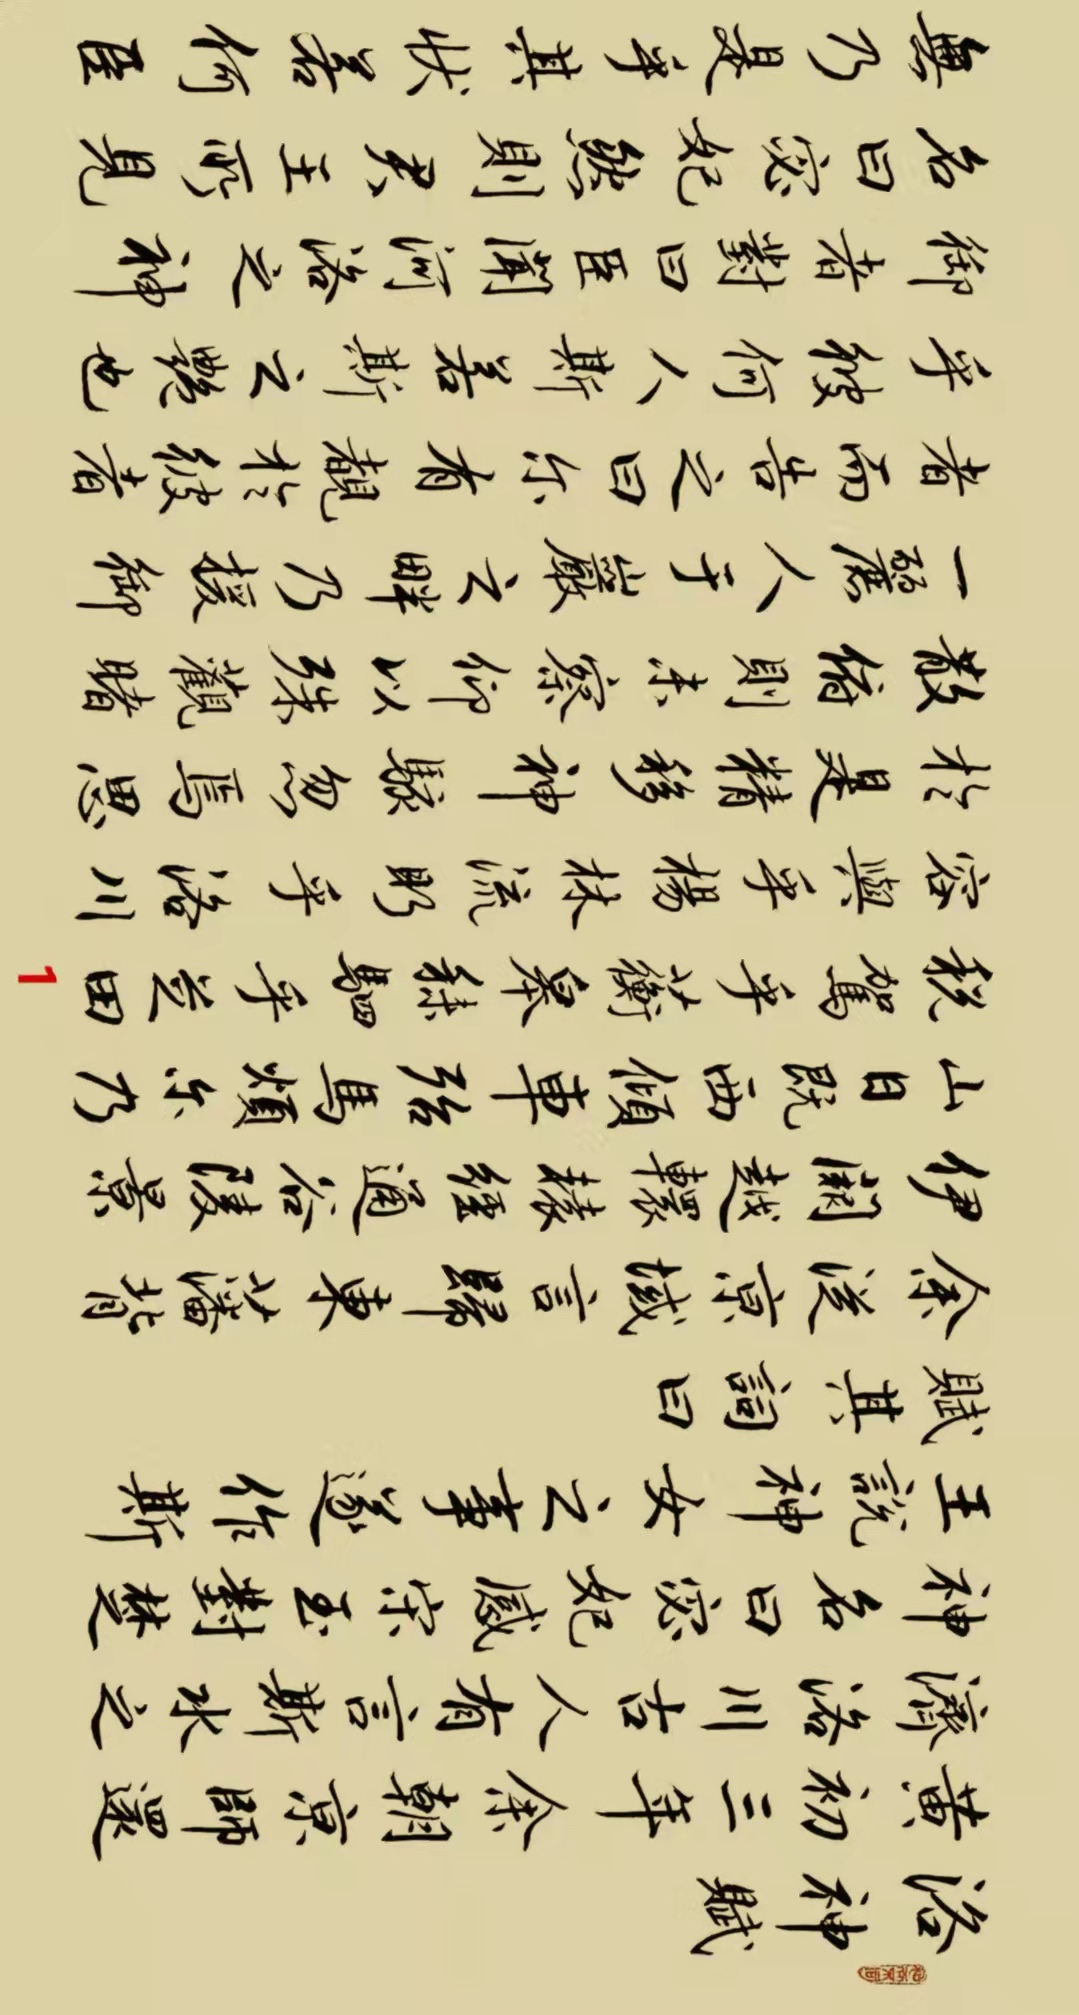 洛神賦
黄初三年余朝京師還
濟洛川古人有言斯水之
神名曰宓妃感宋玉對楚
王說神女之事遂作斯
賦其詞曰
余從京域言歸東藩背
伊闕越轘轅經通谷陵景
山日既西傾車殆馬煩尔乃
税駕乎蘅皋秣駟乎芝田
容與乎楊林流眄乎洛川
於是精移神駭忽焉思
散俯則未察仰以殊觀睹
一麗人于巖之畔乃援御
者而告之曰尔有覿於彼者
乎彼何人斯若斯之艷也
御者對曰臣聞河洛之神
名曰宓妃然則君王所見
無乃是乎其狀若何臣
1